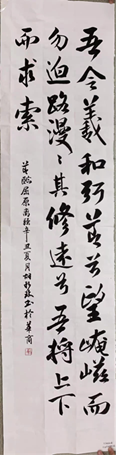 吾令羲和弭节兮望崦嵫而
勿迫路漫々其修遠兮吾将上下
而求索
屈原离骚辛丑夏月书於